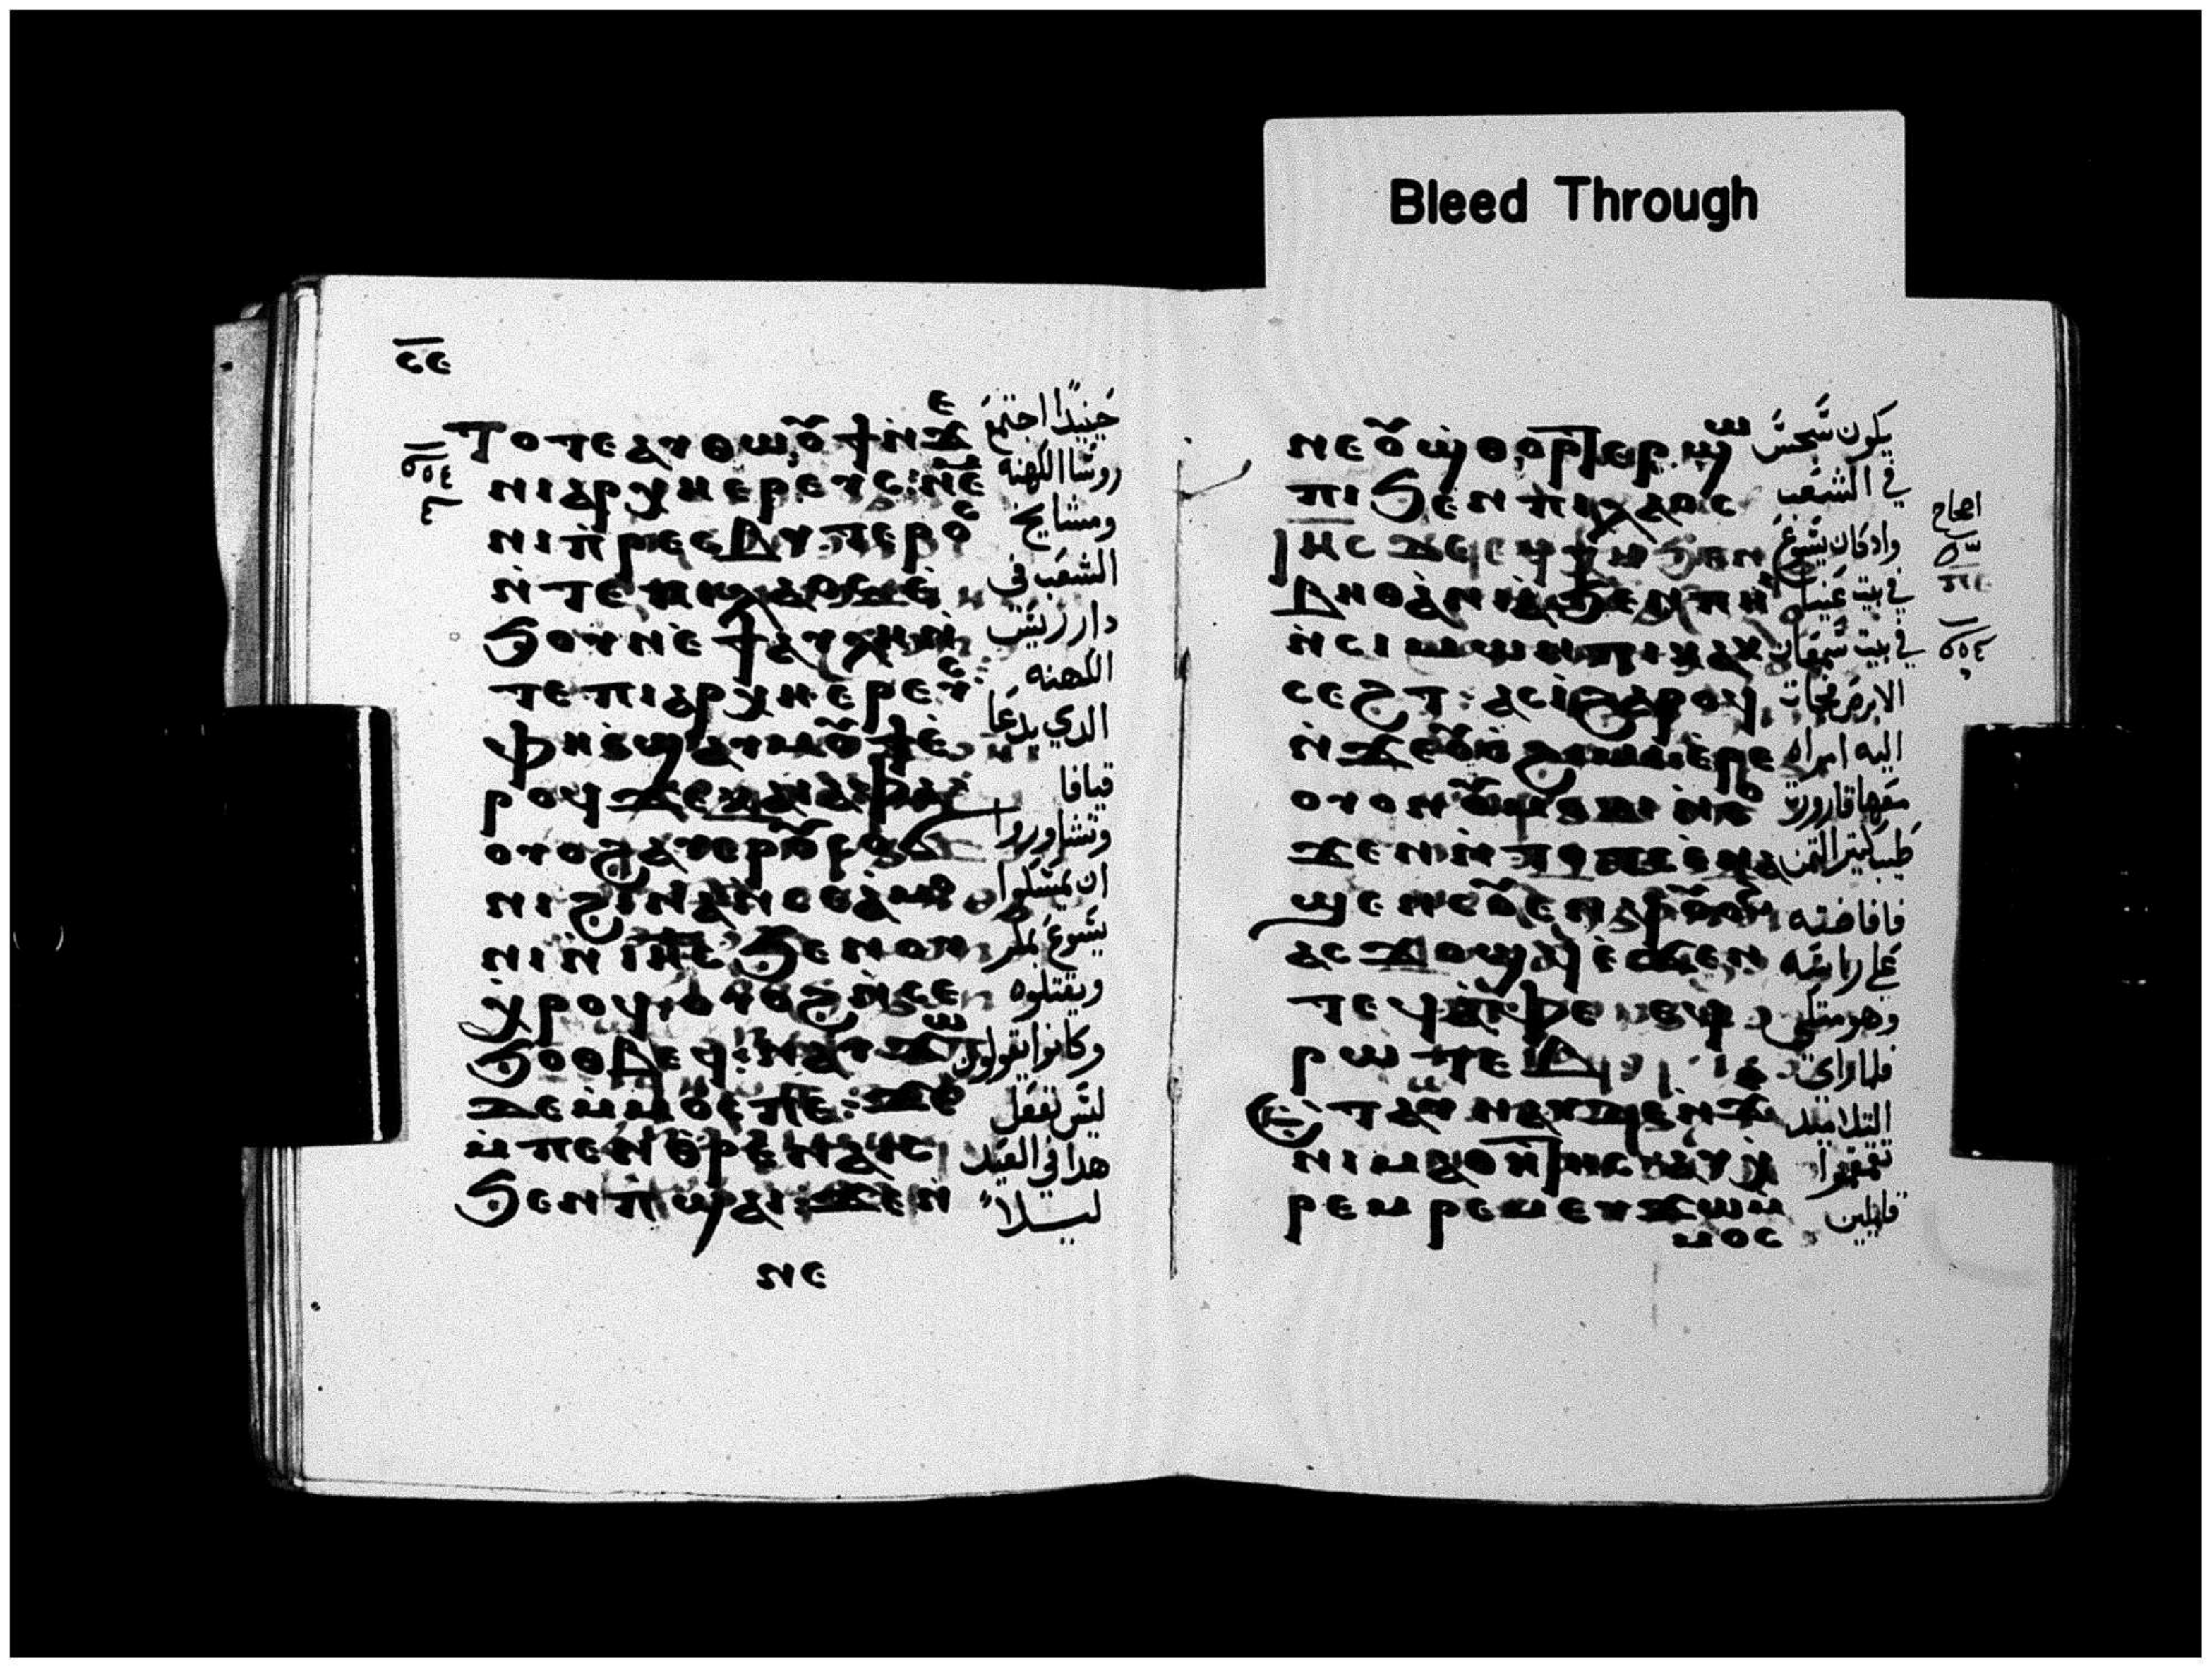 Bleed Through
ⲥⲉ
ⲧⲟⲧⲉ ⲁⲩⲑⲱⲟⲩϯ ⲛ̀ϫⲉ
ⲛⲓⲁⲣⲭⲏⲉⲣⲉⲩⲥ: ⲛⲉⲙ
ⲛⲓⲡ̀ⲣⲉⲥⲃⲩⲧⲉⲣⲟⲥ
ⲛ̀ⲧⲉ ⲡⲓⲗⲁⲟⲥ ⲉ̀
ϧⲟⲩⲛ ⲉ̀ϯⲁⲩⲗⲏ ⲛ̀
ⲧⲉ ⲡⲓⲁⲣⲭⲏⲉⲣⲉⲩⲥ:
ⲫⲏ ⲉ̀ϣⲁⲩⲙⲟⲩϯ ⲉ̀
ⲣⲟϥ ϫⲉ ⲕⲁⲓⲁⲫⲁ
ⲟⲩⲟϩ ⲁⲩⲉⲣⲟⲩⲥⲟϭ
ⲛⲓ ϩⲓⲛⲁ ⲛ̀ⲥⲉⲁ̀ⲙⲟ
ⲛⲓ ⲛ̀ⲓⲏⲥ ϧⲉⲛ ⲟⲩ
ⲭⲣⲟϥ, ⲟⲩⲟϩ ⲛ̀ⲥⲉ
ϧⲟⲑⲃⲉϥ: ⲛⲁⲩϫⲱ
ⲇⲉ ⲙ̀ⲙⲟⲥ ⲡⲉ: ϫⲉ
ⲙ̀ⲡⲉⲛⲑ̀ⲣⲉⲛⲁⲓⲥ
ϧⲉⲛ ⲡ̀ϣⲁⲓ: ϫⲉ ⲛ̀
ⲛⲉ
حينيدا اجتمع
روسا الكهنه
ومشايخ
الشعب في
دار رئيس
الكهنه
الدي يدعا
قيافا
وتشاوروا
ان يمسكوا
يسوع بمكر
ويقتلوه
وكانوا يقولون
ليس نفعل
هدا في العيد
ليلا
ⲛⲉ ⲟⲩϣ̀ⲑⲟⲣⲧⲉⲣ ϣⲱ
ⲡⲓ ϧⲉⲛ ⲡⲓⲗⲁⲟⲥ
ⲓⲏⲥ ⲇⲉ ⲉϥⲭⲏ ϧⲉⲛ
ⲃⲏⲑⲁ̀ⲛⲓⲁ̀ ϧⲉⲛ ⲡⲏⲓ
ⲛ̀ⲥⲓⲙⲱⲛ ⲡⲓⲕⲁⲕ
ⲥⲉϩⲧ: ⲁⲥⲓ̀ ϩⲁⲣⲟϥ
ⲛ̀ϫⲉ ⲟⲩⲥ̀ϩⲓⲙⲓ ⲉ̀ⲣⲉ
ⲟⲩⲟⲛ ⲟⲩⲙⲟⲕⲓ ⲛ̀ⲥⲟ
ϫⲉⲛ ⲛ̀ⲧⲟⲧⲥ ⲉ̀ⲛⲁ
ϣⲉⲛⲥⲟⲩⲉⲛϥ ⲟⲩⲟϩ
ⲁⲥϫⲟϣϥ ⲉ̀ϫⲉⲛ
ⲧⲉϥⲁ̀ⲫⲉ ⲉϥ
ⲣⲱⲧⲉⲃ
ⲧⲁⲩ ⲛⲁⲩ ⲇⲉ ⲛ̀ϫⲉ
ⲛⲓⲙⲁⲑⲏⲧⲏⲥ ⲁⲩⲭ̀
ⲣⲉⲙⲣⲉⲙ ⲉⲩϫⲱ ⲙ̀
ⲙⲟⲥ
يكون سجس
في الشعب
واد كان يسوع
في بيت عنيا
في بيت سمعان
الابرص فجات
اليه امراه
معها قارورة
طيب كتير التمن
فافاضته
علي راسه
وهو متكي
فلما راي
التلاميد
تقمقموا
قايلين
اصحاح